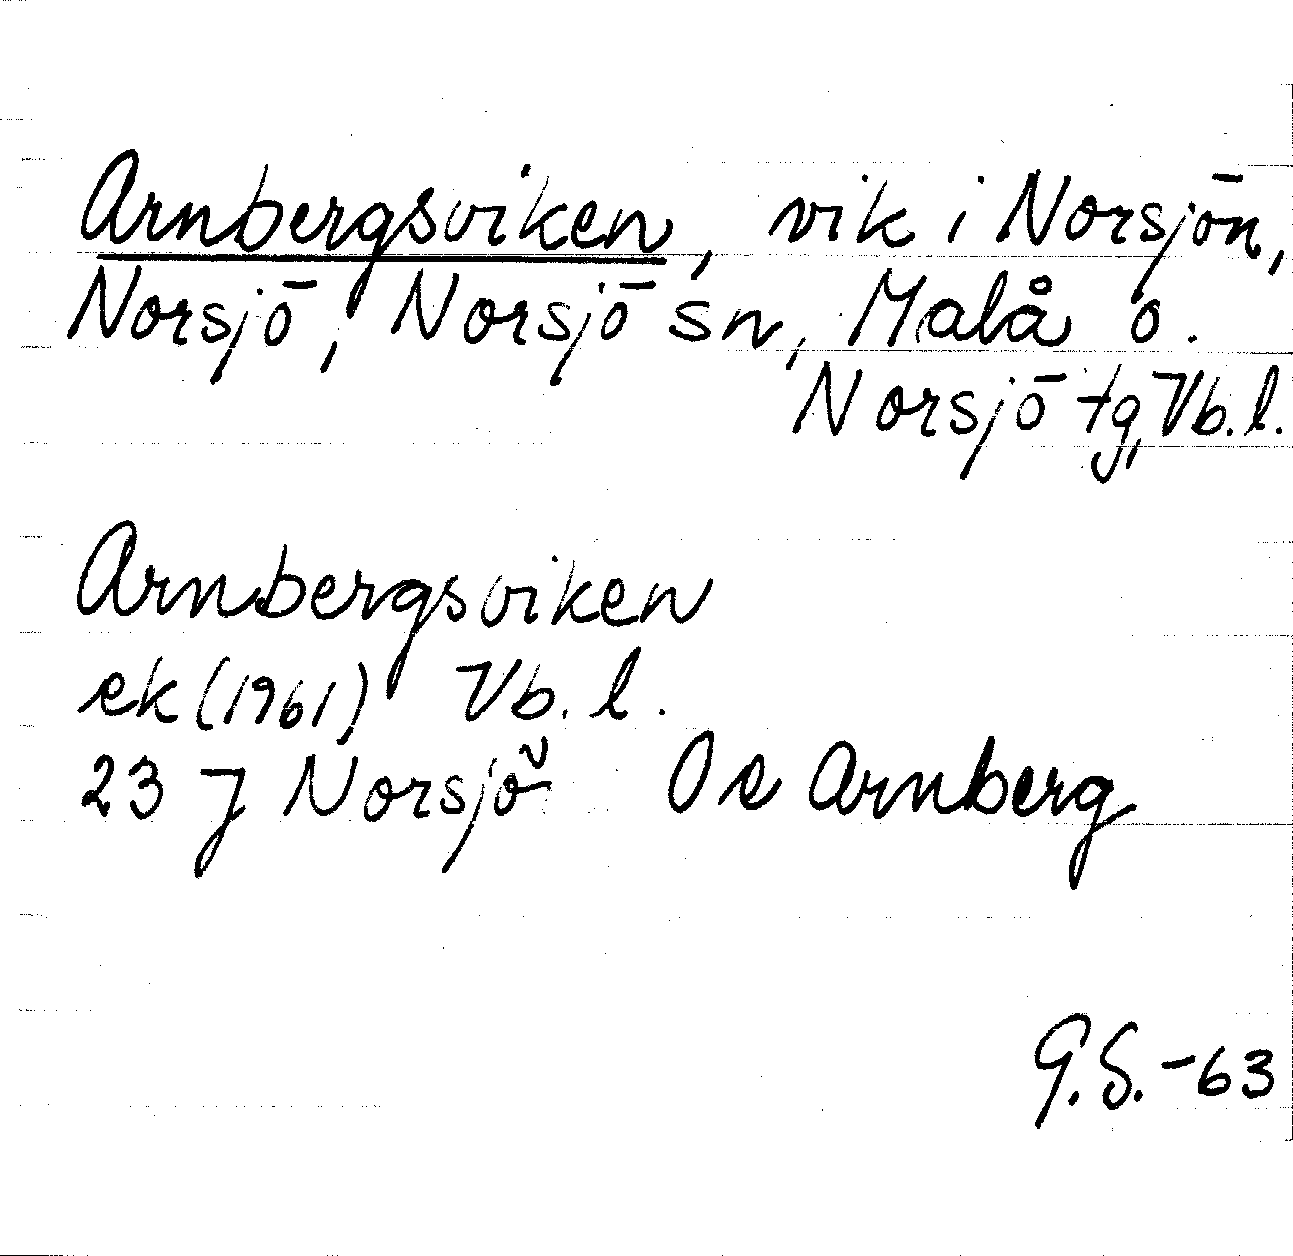 Arnbergsviken, vik i Norsjön,
Norsjö, Norsjö sn, Malå o.
Norsjö tg, Vb.l.
Arnbergsviken
ek (1961) Vb. l.
23 J Norsjö Oe Arnberg
G.S. -63